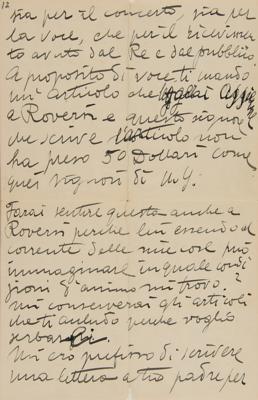 12
sia per il concerto, sia per
la voce, che per il ricevimen-
to avuto dal Re e dal pubblico.
A proposito di voce ti mando
un articolo che
a Roversi e questo signor
che scrive l'articolo non
ha preso 50 Dollari come
quei signori di N.Y.
Farai sentire questo anche a
Roversi perche lui essendo al
corrente delle mie cose può
immaginare in quale condi
zioni d'animo mi trovo.
mi conserverai gli articoli
che ti accludo perche voglio
serbarli.
Mi ero prefisso di scrivere
una lettera a tuo padre per